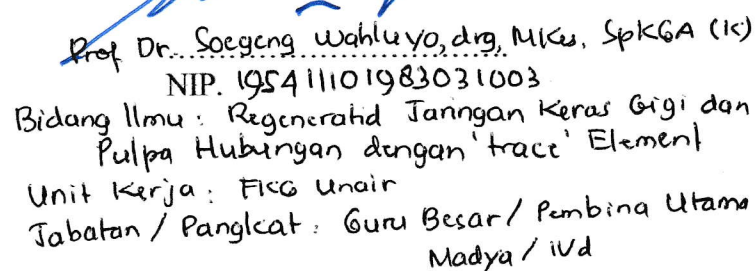 Prof Dr. Soegeng Wahluyo, drg, MKes, SpKGA (K)
NIP. 195411101983031003
Bidang Ilmu : Regeneratid Jaringan Keras Gigi dan
Pulpa Hubungan dengan 'trace' Element
Unit Kerja : FKG Unair
Jabatan / Pangkat : Guru Besar / Pembina Utama
Madya / IVd